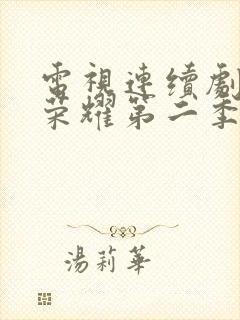 電視連續劇
荣耀第二季
湯莉華